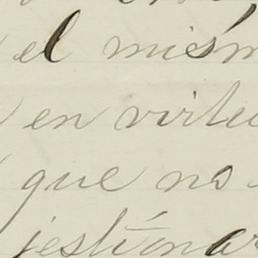 el mism
en virtu
que no
jestionar